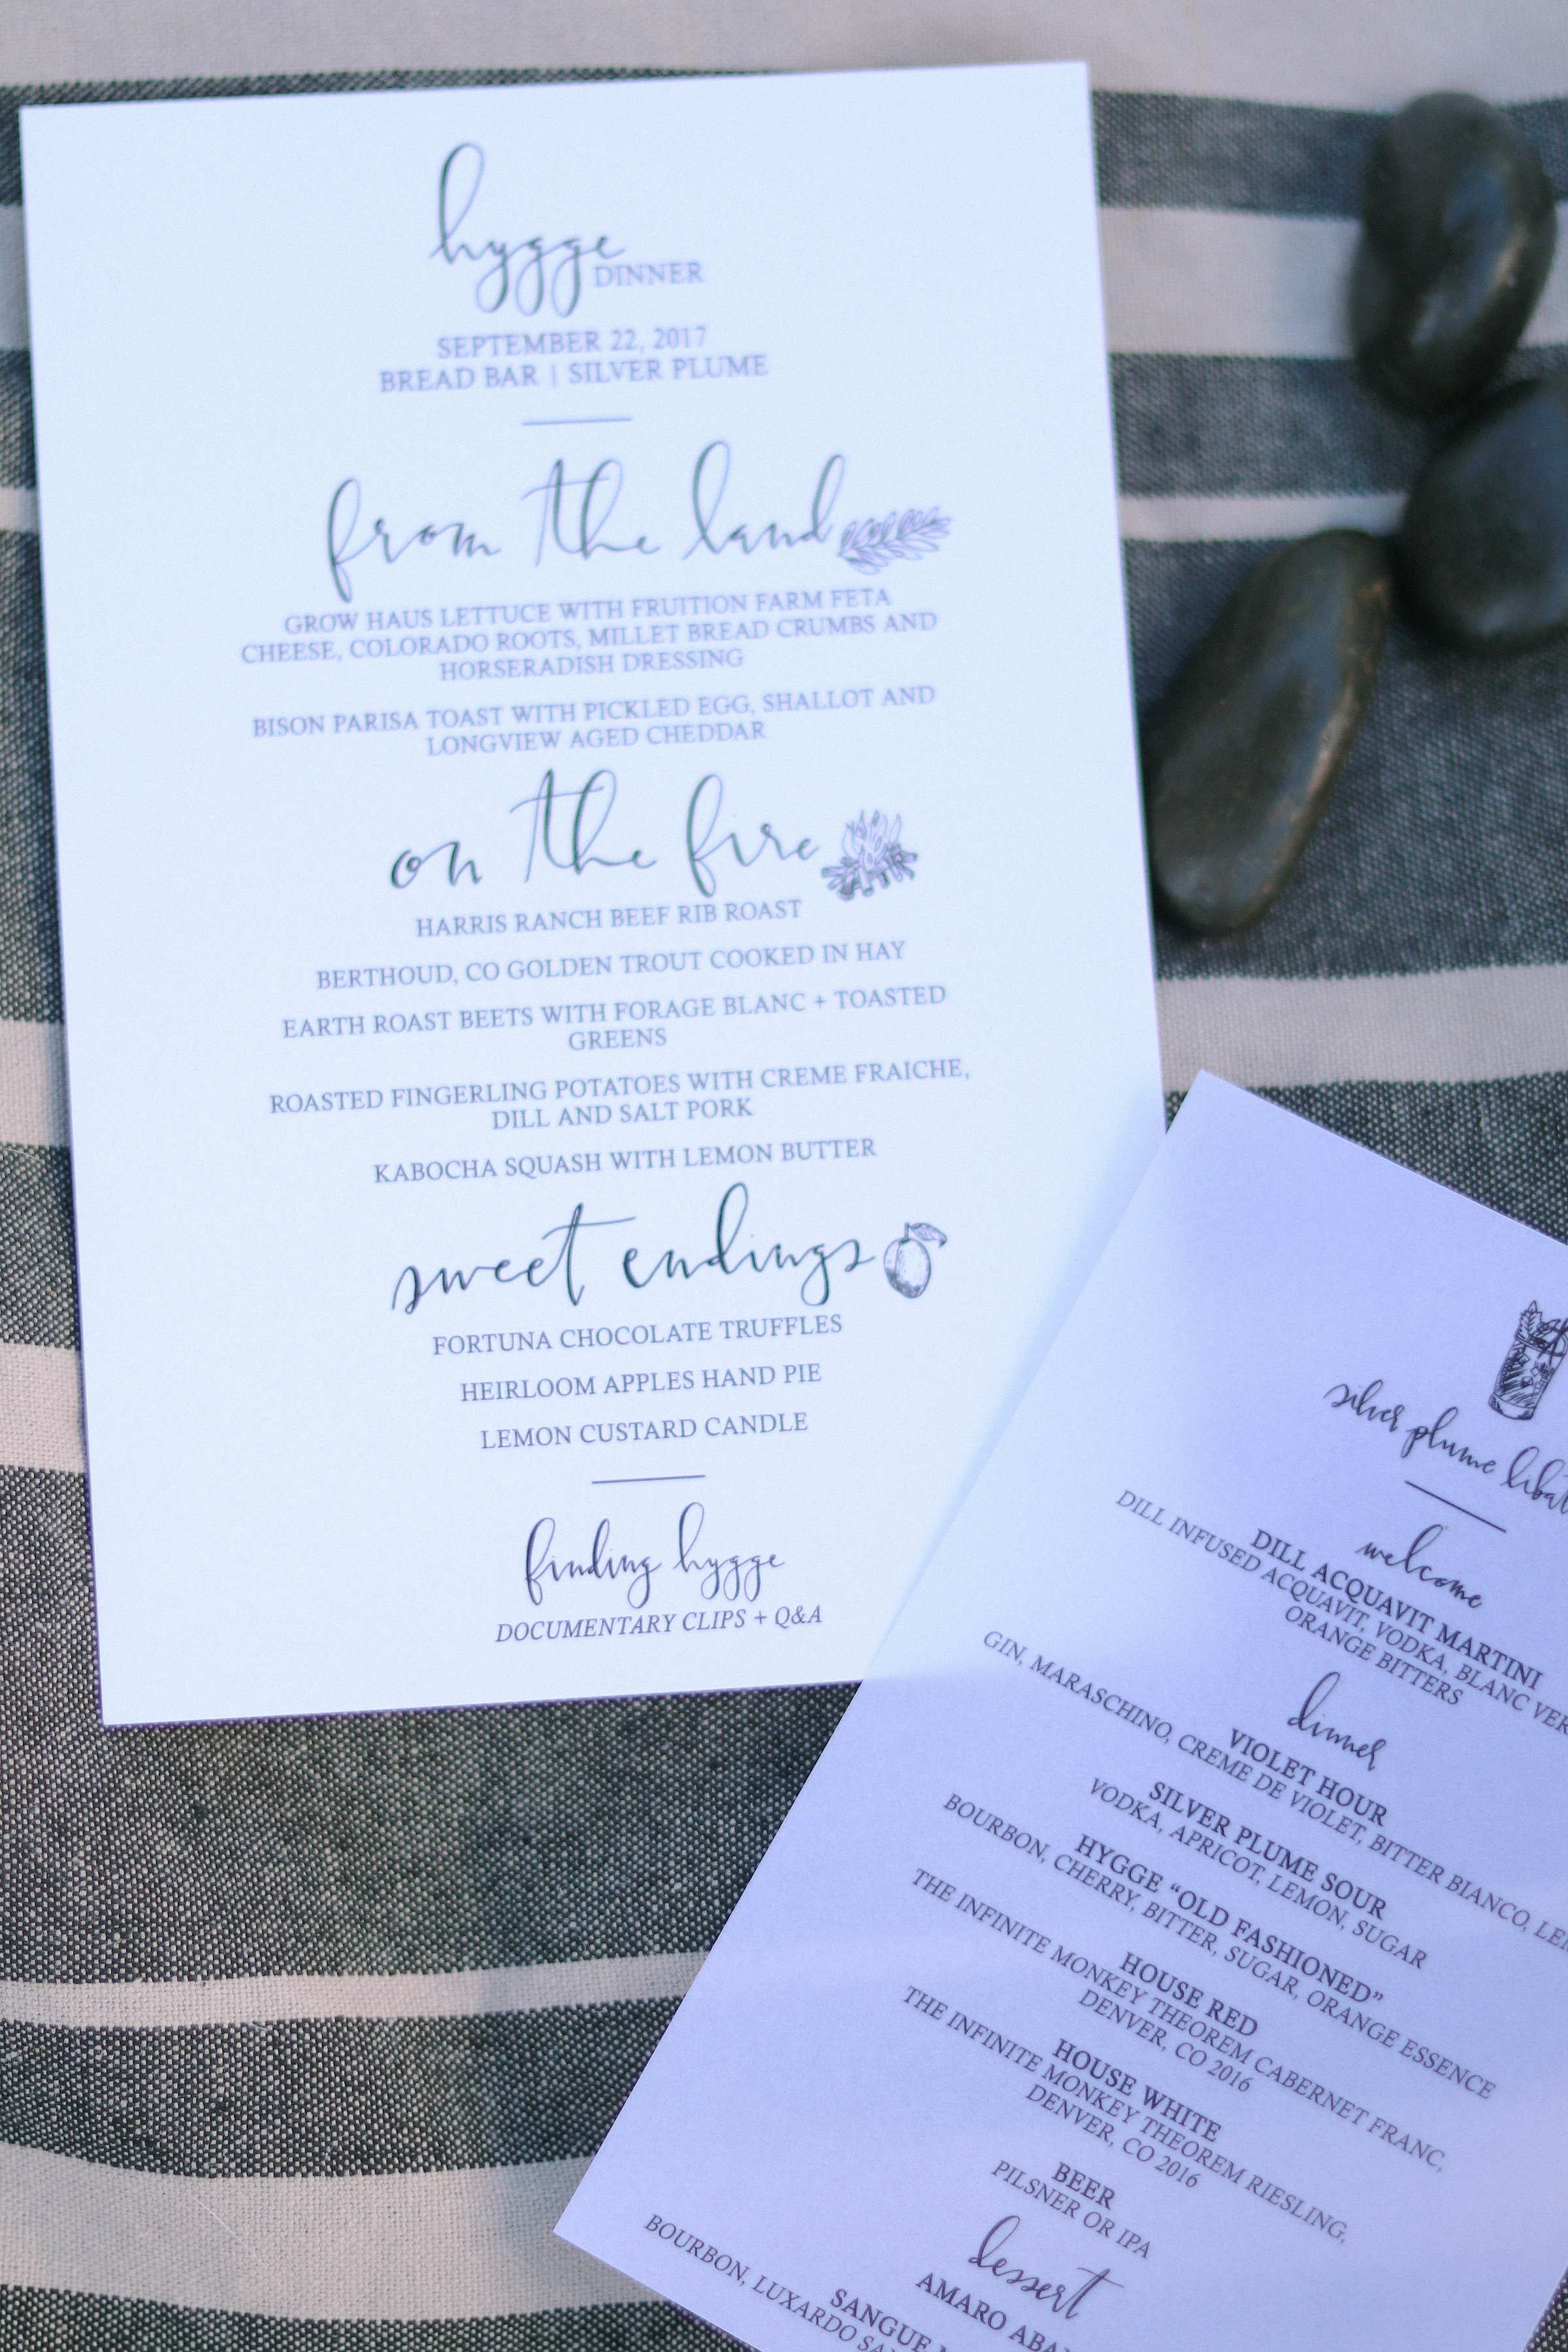 hygge DINNER
SEPTEMBER 22, 2017
BREAD BAR | SILVER PLUME
from the land
GROW HAUS LETTUCE WITH FRUITION FARM FETA
CHEESE, COLORADO ROOTS, MILLET BREAD CRUMBS AND
HORSERADISH DRESSING
BISON PARISA TOAST WITH PICKLED EGG, SHALLOT AND
LONGVIEW AGED CHEDDAR
on the fire
HARRIS RANCH BEEF RIB ROAST
BERTHOUD, CO GOLDEN TROUT COOKED IN HAY
EARTH ROAST BEETS WITH FORAGE BLANC + TOASTED
GREENS
ROASTED FINGERLING POTATOES WITH CREME FRAICHE,
DILL AND SALT PORK
KABOCHA SQUASH WITH LEMON BUTTER
sweet endings
FORTUNA CHOCOLATE TRUFFLES
HEIRLOOM APPLES HAND PIE
LEMON CUSTARD CANDLE
finding hygge
DOCUMENTARY CLIPS + Q&A
silver plume libat
welcome
DILL ACQUAVIT MARTINI
DILL INFUSED ACQUAVIT, VODKA, BLANC VER
ORANGE BITTERS
dinner
VIOLET HOUR
GIN, MARASCHINO, CREME DE VIOLET, BITTER BIANCO, LE
SILVER PLUME SOUR
VODKA, APRICOT, LEMON, SUGAR
HYGGE “OLD FASHIONED”
BOURBON, CHERRY, BITTER, SUGAR, ORANGE ESSENCE
HOUSE RED
THE INFINITE MONKEY THEOREM CABERNET FRANC,
DENVER, CO 2016
HOUSE WHITE
THE INFINITE MONKEY THEOREM RIESLING,
DENVER, CO 2016
BEER
PILSNER OR IPA
dessert
AMARO ABA
SANGUE
BOURBON, LUXARDO SA